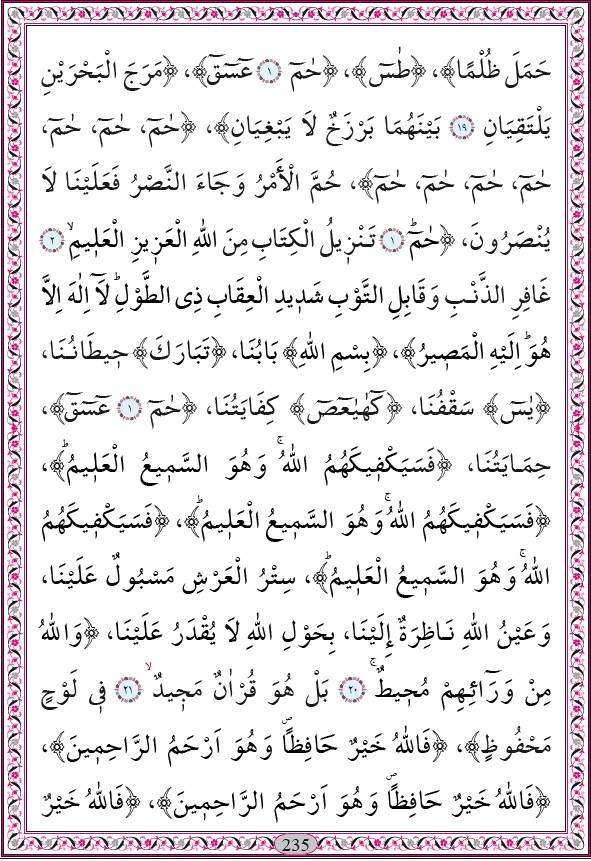 حَمَلَ ظُلْمًا﴾، ﴿طٰسٓ﴾، ﴿حٰمٓ ۝١ عٓسٓقٓ﴾، ﴿مَرَجَ الْبَحْرَيْنِ
يَلْتَقِيَانِ ۝١٩ بَيْنَهُمَا بَرْزَخٌ لَا يَبْغِيَانِ﴾، ﴿حٰمٓ، حٰمٓ، حٰمٓ،
حٰمٓ، حٰمٓ، حٰمٓ، حٰمٓ﴾، حُمَّ الْأَمْرُ وَجَاءَ النَّصْرُ فَعَلَيْنَا لَا
يُنْصَرُونَ، ﴿حٰمٓۚ ۝١ تَنْزِيلُ الْكِتَابِ مِنَ اللهِ الْعَزِيزِ الْعَلِيمِۙ ۝٢
غَافِرِ الذَّنْبِ وَقَابِلِ التَّوْبِ شَدِيدِ الْعِقَابِ ذِى الطَّوْلِۜ لَآ اِلٰهَ اِلَّا
هُوَۜ اِلَيْهِ الْمَصِيرُ﴾، ﴿بِسْمِ اللهِ﴾ بَابُنَا، ﴿تَبَارَكَ﴾ حِيطَانُنَا،
﴿يٰسٓ﴾ سَقْفُنَا، ﴿كٓهٰيٰعٓصٓ﴾ كِفَايَتُنَا، ﴿حٰمٓ ۝١ عٓسٓقٓ﴾،
حِمَايَتُنَا، ﴿فَسَيَكْفِيكَهُمُ اللهُۚ وَهُوَ السَّمِيعُ الْعَلِيمُۜ﴾،
﴿فَسَيَكْفِيكَهُمُ اللهُۚ وَهُوَ السَّمِيعُ الْعَلِيمُۜ﴾، ﴿فَسَيَكْفِيكَهُمُ
اللهُۚ وَهُوَ السَّمِيعُ الْعَلِيمُۜ﴾، سِتْرُ الْعَرْشِ مَسْبُولٌ عَلَيْنَا،
وَعَيْنُ اللهِ نَاظِرَةٌ إِلَيْنَا، بِحَوْلِ اللهِ لَا يُقْدَرُ عَلَيْنَا، ﴿وَاللهُ
مِنْ وَرَآئِهِمْ مُحِيطٌۚ ۝٢٠ بَلْ هُوَ قُرْاٰنٌ مَجِيدٌۙ ۝٢١ فِى لَوْحٍ
مَحْفُوظٍ﴾، ﴿فَاللهُ خَيْرٌ حَافِظًاۖ وَهُوَ اَرْحَمُ الرَّاحِمِينَ﴾،
﴿فَاللهُ خَيْرٌ حَافِظًاۖ وَهُوَ اَرْحَمُ الرَّاحِمِينَ﴾، ﴿فَاللهُ خَيْرٌ
235